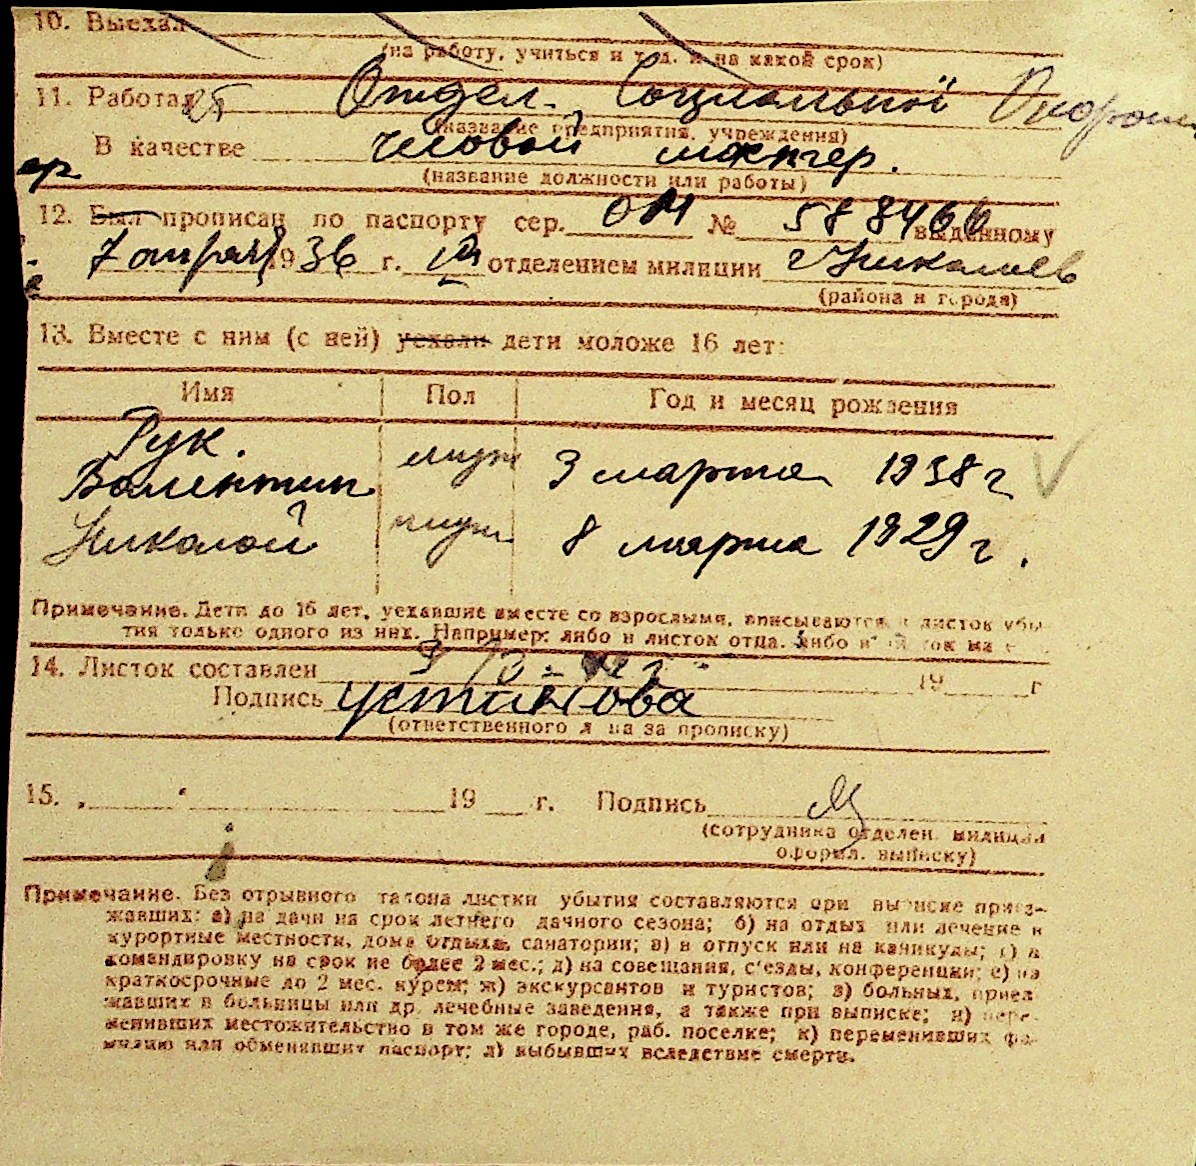 10. Выехал
(на работу, учиться и т. д. и на какой срок)
11. Работает Отдел. Социальной
(название предприятия, учреждения)
В качестве часовой мастер.
(название должности или работы)
ер
12. Был прописан по паспорту сер. ОМ № 588466 выданному
7 апреля 1936 г. отделением милиции г Николаев
(района и города)
13. Вместе с ним (с ней) уехали дети моложе 16 лет:
Имя Пол Год и месяц рождения
Рук.
Валентин муж 3 марта 1938 г
Николай муж 8 марта 1929 г.
Примечание. Дети до 16 лет, уехавшие вместе со взрослыми, вписываются в листок убы-
тия только одного из них. Например: либо в листок отца, либо в
14. Листок составлен 19 г
Подпись Устинова
(ответственного за прописку)
15. „ “ 19 г. Подпись
(сотрудника отделен. милиции
оформл. выписку)
Примечание. Без отрывного талона листки убытия составляются при выписке приез-
жавших: а) на дачи на срок летнего дачного сезона; б) на отдых или лечение в
курортные местности, дома отдыха, санатории; в) в отпуск или на каникулы; г) в
командировку на срок не более 2 мес.; д) на совещания, с'езды, конференции; е) на
краткосрочные до 2 мес. курсы; ж) экскурсантов и туристов; з) больных, приез
жавших в больницы или др. лечебные заведения, а также при выписке; и) пере-
менивших местожительство в том же городе, раб. поселке; к) переменивших фа-
милию или обменявших паспорт; л) выбывших вследствие смерти.